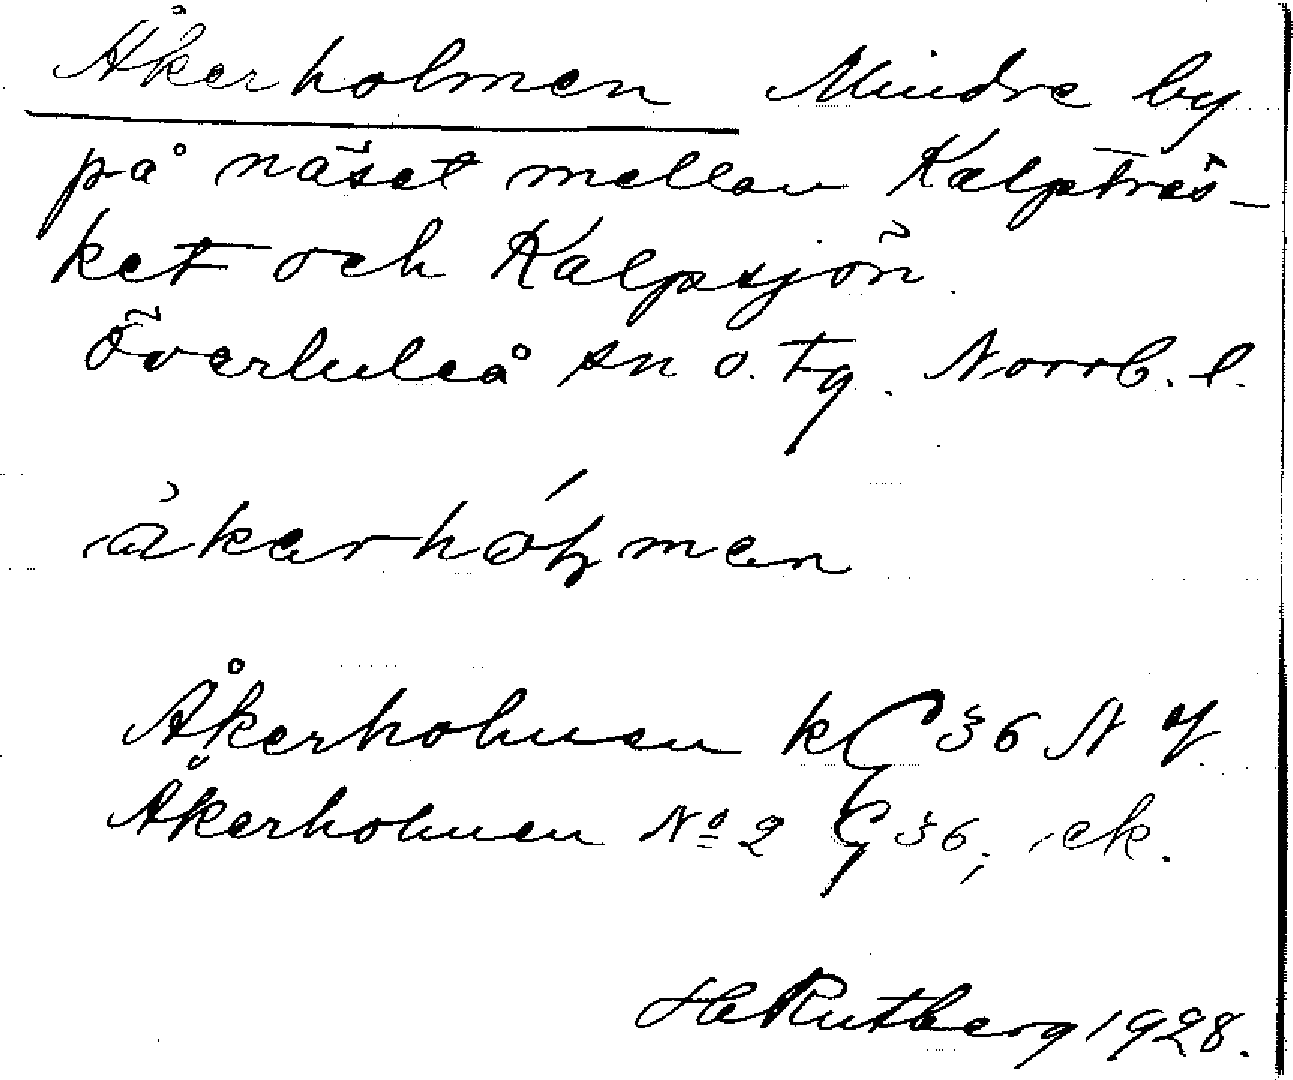 Åkerholmen Mindre by
på näset mellan Kalpträs-
ket och Kalpsjön.
Överluleå sn o. tg. Norrb. l.
åkerhólmen
Åkerholmen kG 36 N
Åkerholmen No 2 G 36, ek.
H Rutberg 1928.